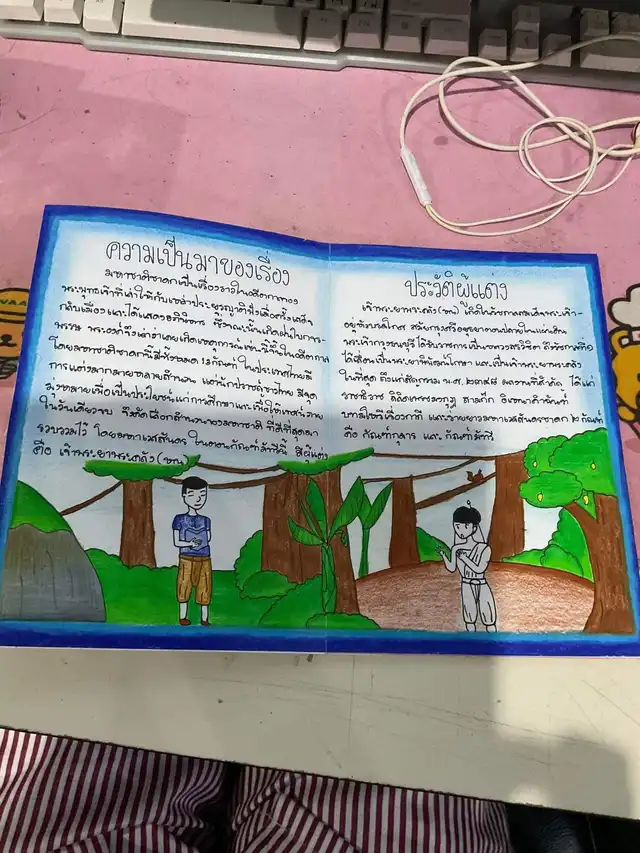 ความเป็นมาของเรื่อง
มหาชาติชาดกเป็นเรื่องราวในอดีตกาลของ
พระพุทธเจ้าที่เล่าให้กับเหล่าประยูรญาติฟังเมื่อครั้งเสด็จ
กลับเมืองและได้แสดงอภินิหาร ซึ่งขณะนั้นเกิดฝนโบกขร-
พรรษ พระองค์จึงเล่าว่าเคยเกิดเหตุการณ์เช่นนี้ขึ้นในอดีตกาล
โดยมหาชาติชาดกนี้มีทั้งหมด 13 กัณฑ์ ในประเทศไทยมี
การแต่งมากมายหลายสำนวน แต่นักปราชญ์ชาวไทย มีจุด
มุ่งหมายเพื่อเป็นประโยชน์แก่การศึกษาและเพื่อใช้เทศน์จบ
ในวันเดียวจบ จึงคัดเลือกสำนวนของมหาชาติ ที่ดีที่สุดมา
รวบรวมไว้ โดยมหาเวสสันดร ในตอนกัณฑ์มัทรีนี้ มีผู้แต่ง
คือ เจ้าพระยาพระคลัง (หน)
ประวัติผู้แต่ง
เจ้าพระยาพระคลัง (หน) เกิดในรัชกาลสมเด็จพระเจ้า-
อยู่หัวบรมโกศ สมัยกรุงศรีอยุธยาตอนปลายในแผ่นดิน
พระเจ้ากรุงธนบุรี ได้รับราชการเป็นหลวงสรวิชิต
ได้เลื่อนเป็นพระยาพิพัฒน์โกษา และเป็นเจ้าพระยาพระคลัง
ในที่สุด ถึงแก่อสัญกรรม พ.ศ. ๒๓๔๘ ผลงานที่สำคัญ ได้แก่
ราชาธิราช ลิลิตเพชรมงกุฎ สามก๊ก อิเหนาคำฉันท์
และร่ายยาวมหาเวสสันดรชาดก ๒ กัณฑ์
คือ กัณฑ์กุมาร และ กัณฑ์มัทรี